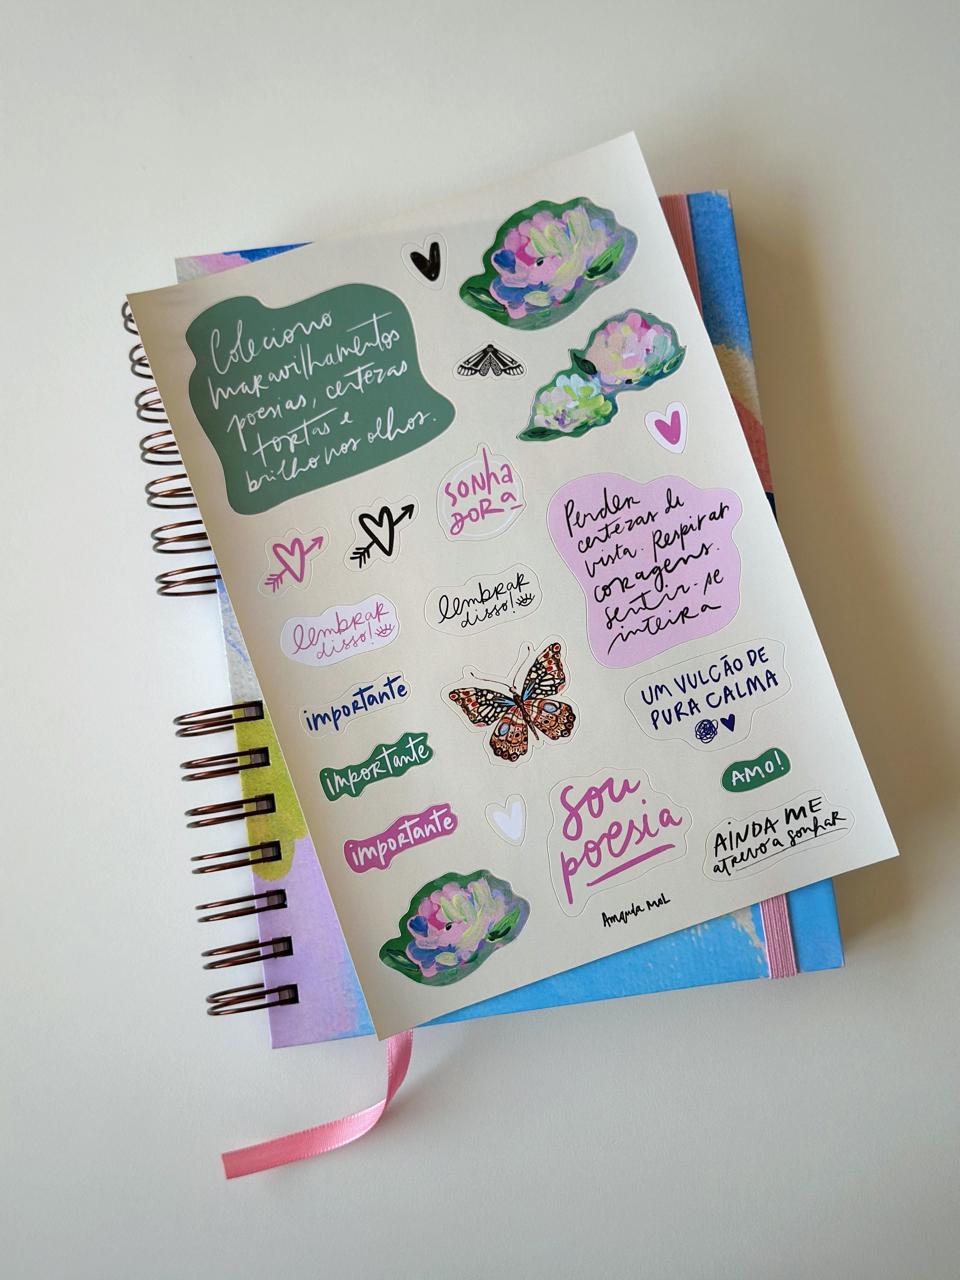 Coleciono
maravilhamentos
poesias, certezas
tortas e
brilho nos olhos.
sonha
DORa
Perder
certezas de
vista. Respirar
coragens.
Sentir-se
inteira
lembrar
disso!
lembrar
disso!
importante
UM VULCÃO DE
PURA CALMA
importante
AMO!
importante
Sou
poesia
AINDA ME
atrevo a sonhar
Amanda Mol